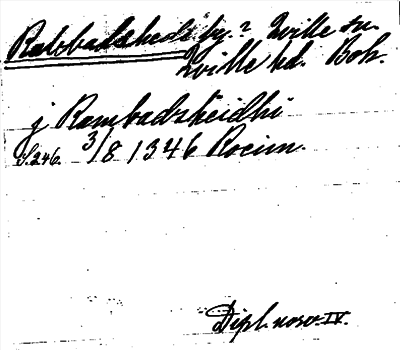 Rabbadsheid by.? Qville sn.
Qville hd. Boh.
j Rambadzheidhi
S.246. 3/8 1346 Rocim.
Dipl. norv. IV.